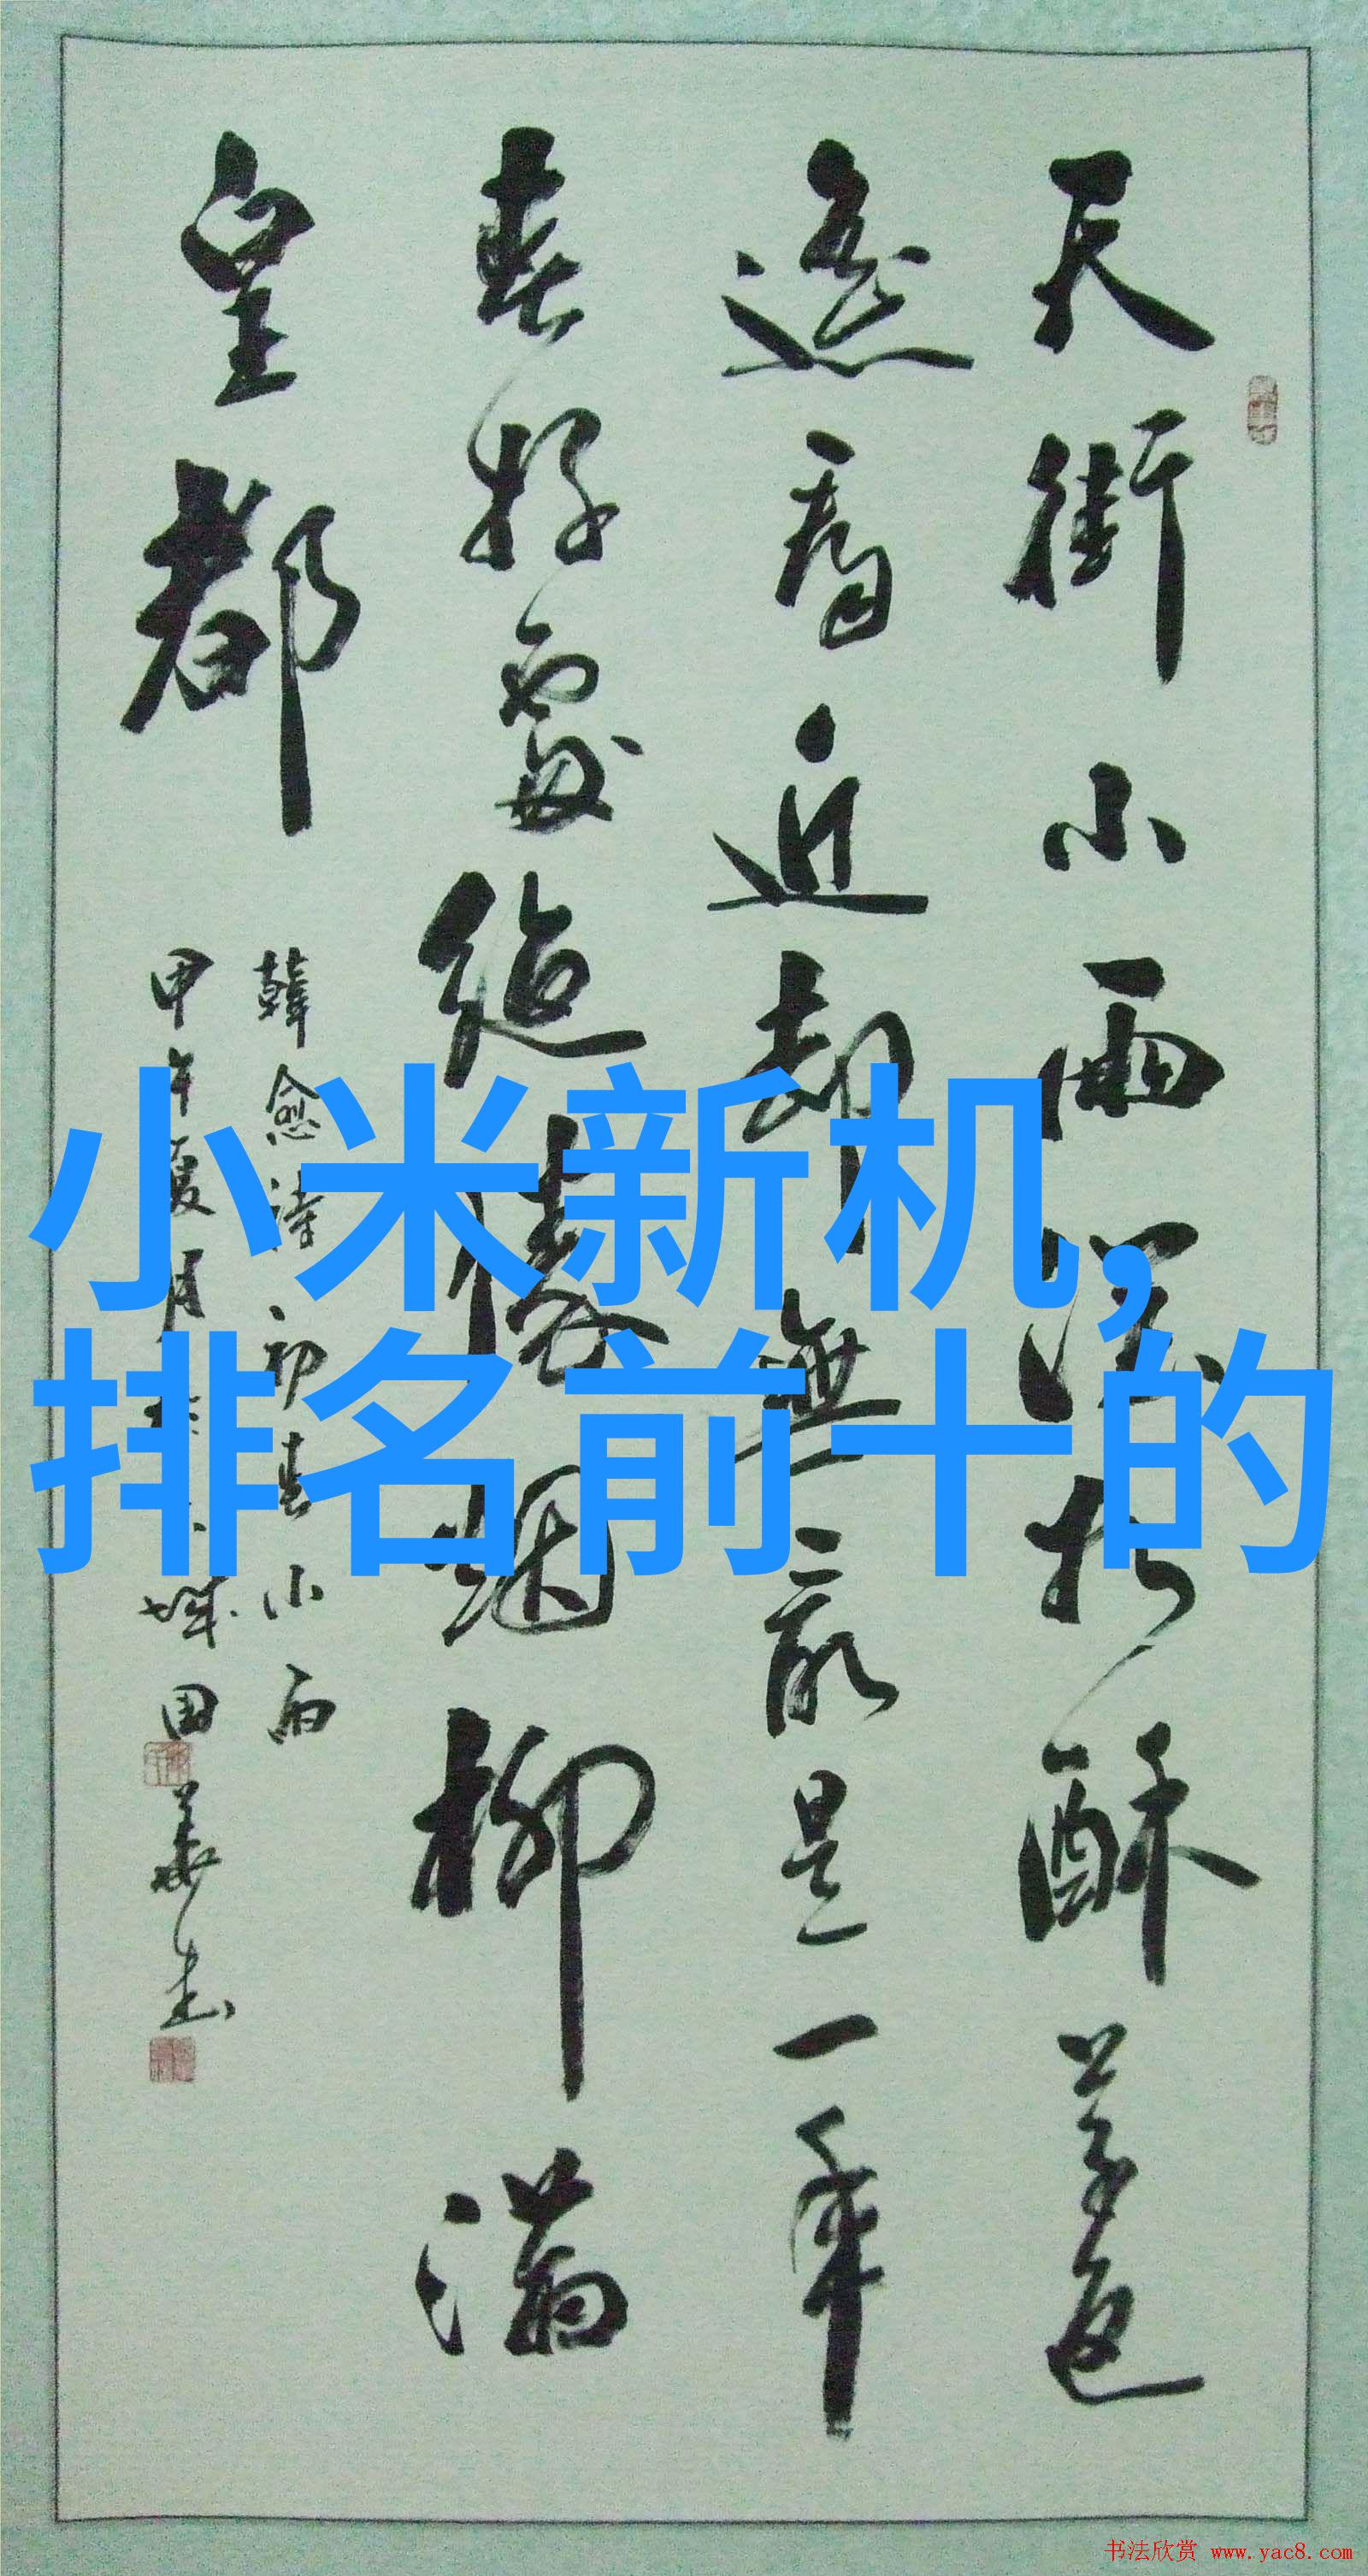 天街小雨润如酥草色
遥看近却無最是一年
春好處絶勝烟柳满
皇都
韓愈詩初春小雨
甲午夏月
小米新机,
排名前十的
书法欣赏 www.yac8.com